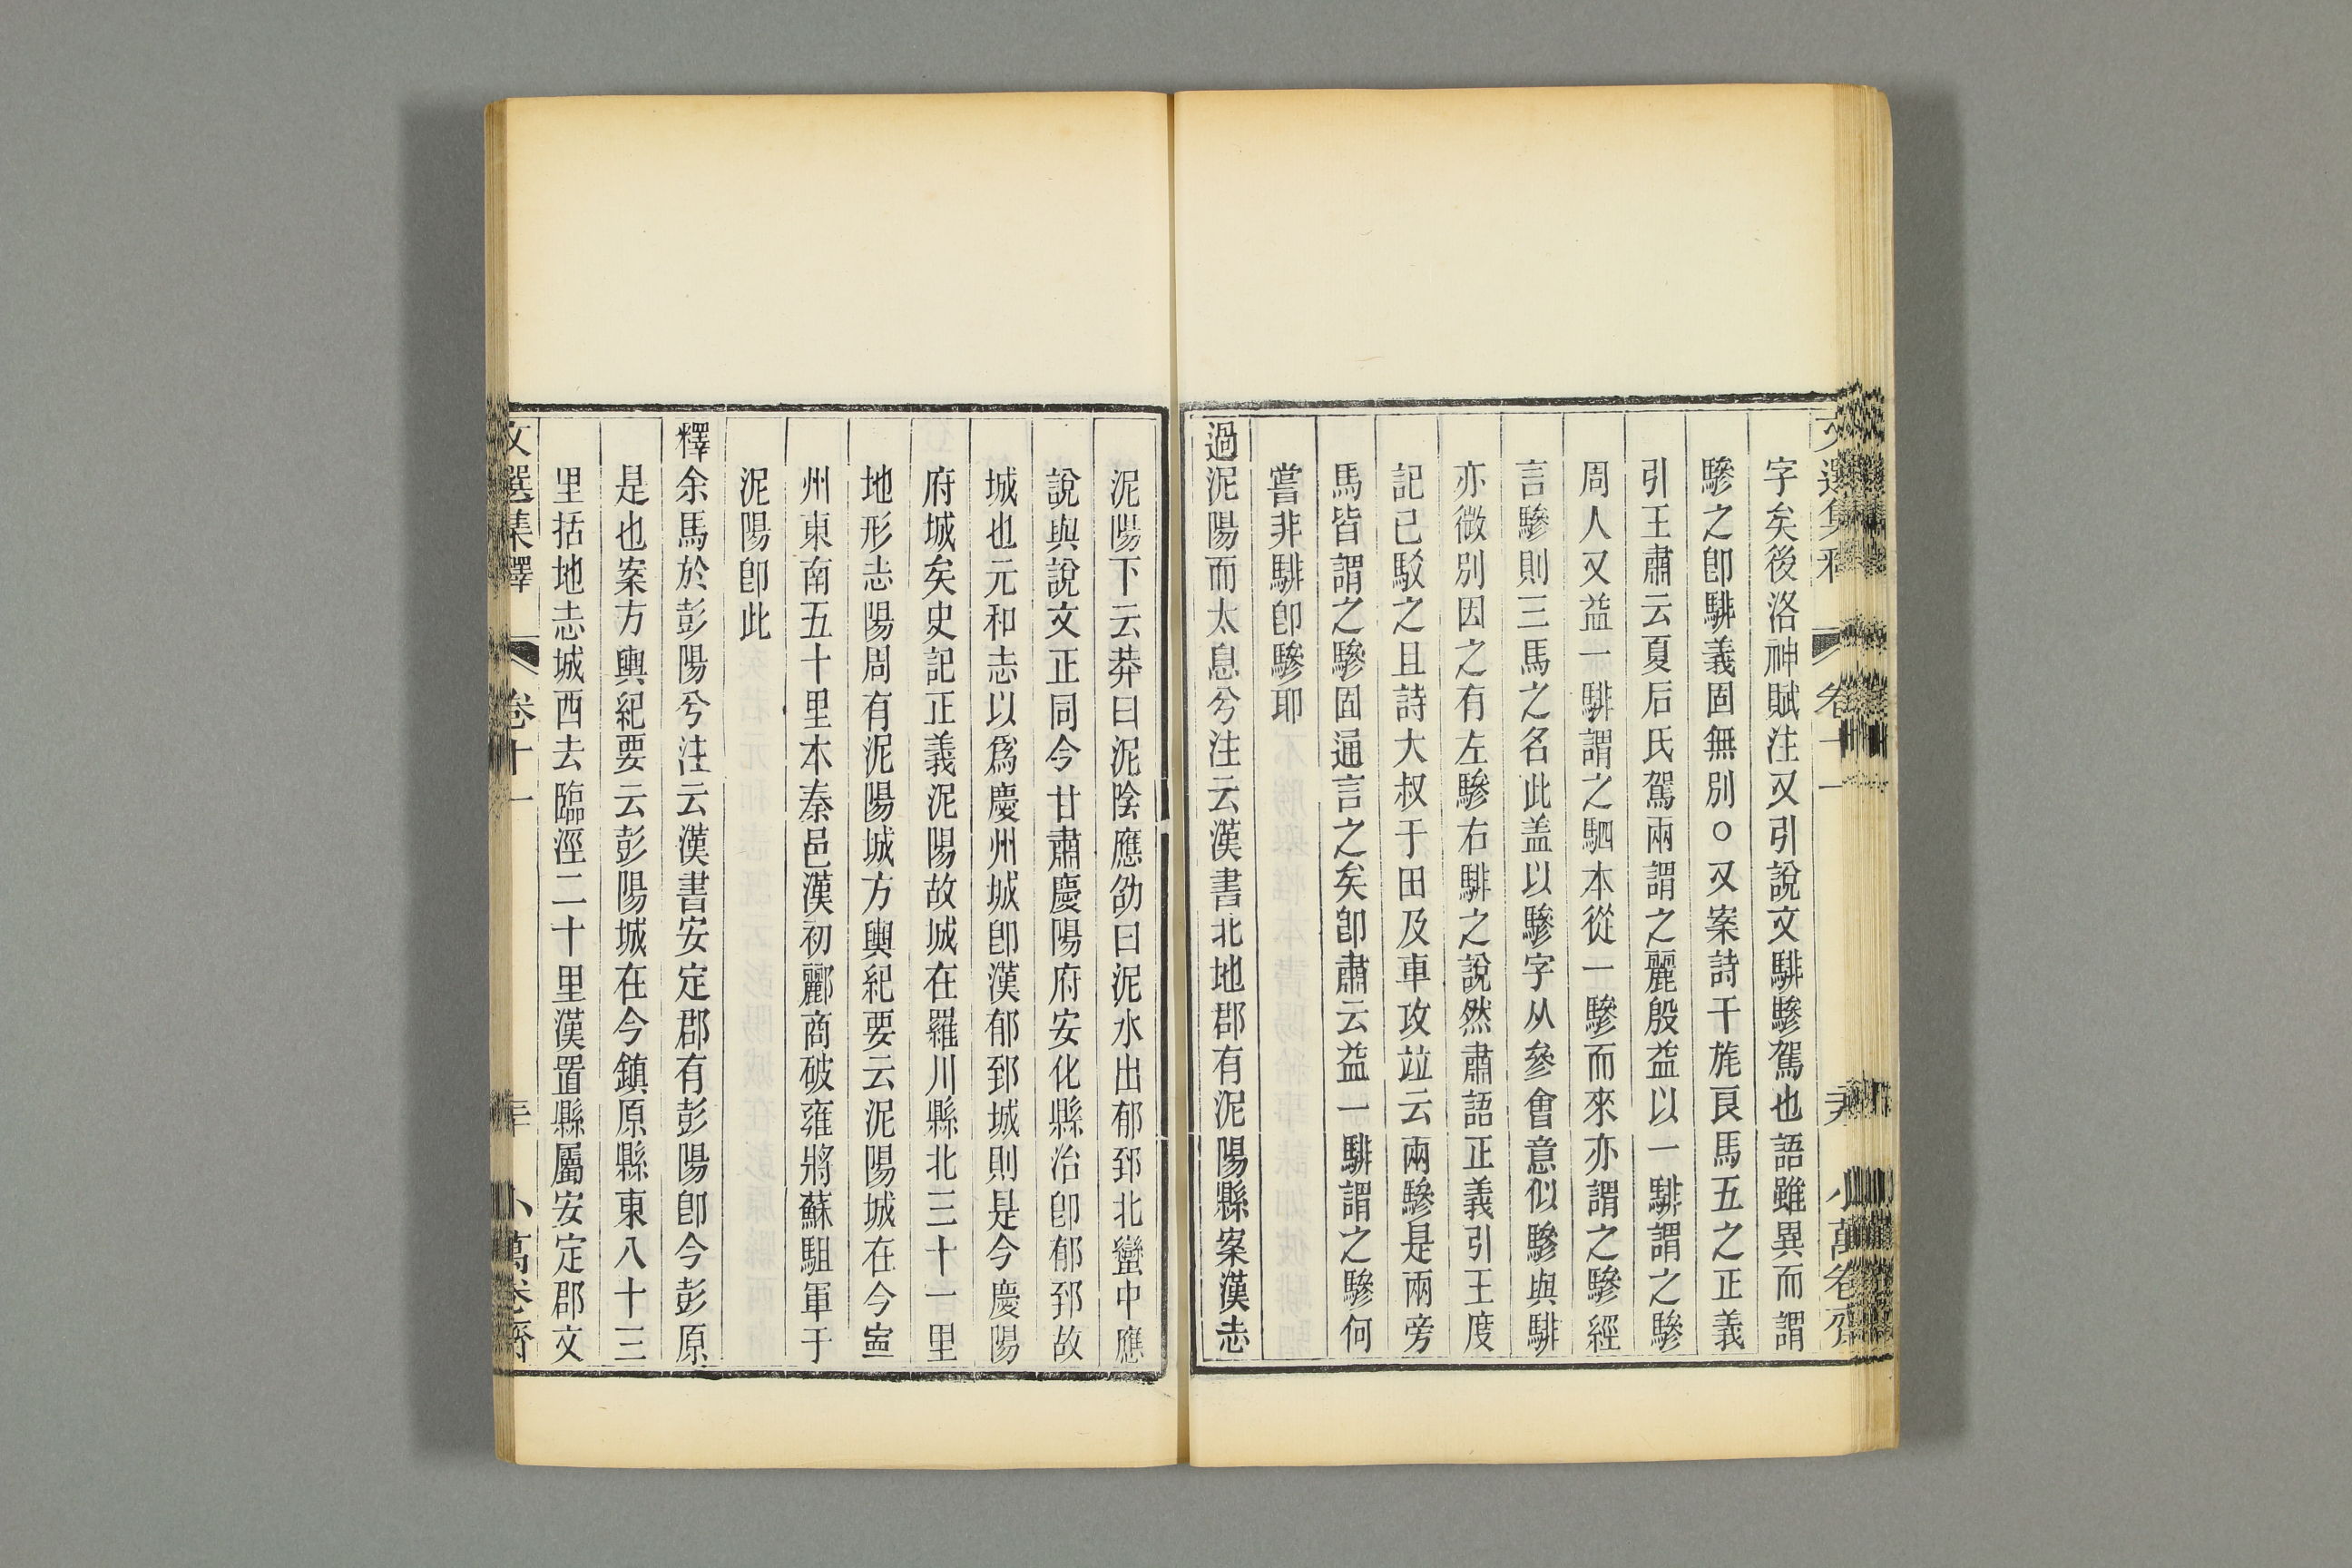 字矣後洛神賦注又引說文騑驂駕也語雖異而謂
驂之卽騑義固無別○又案詩干旄良馬五之正義
引王肅云夏后氏駕兩謂之麗殷益以一騑謂之驂
周人又益一騑謂之駟本從一驂而來亦謂之驂經
言驂則三馬之名此盖以驂字从參會意似驂與騑
亦微別因之有左驂右騑之說然肅語正義引王度
記已駁之且詩大叔于田及車攻竝云兩驂是兩旁
馬皆謂之驂固通言之矣卽肅云益一騑謂之驂何
嘗非騑卽驂耶
過泥陽而太息兮注云漢書北地郡有泥陽縣案漢志
泥陽下云莽曰泥陰應劭曰泥水出郁郅北蠻中應
說與說文正同今甘肅慶陽府安化縣治卽郁郅故
城也元和志以爲慶州城卽漢郁郅城則是今慶陽
府城矣史記正義泥陽故城在羅川縣北三十一里
地形志陽周有泥陽城方輿紀要云泥陽城在今寍
州東南五十里本秦邑漢初酈商破雍將蘇駔軍于
泥陽卽此
釋余馬於彭陽兮注云漢書安定郡有彭陽卽今彭原
是也案方輿紀要云彭陽城在今鎮原縣東八十三
里括地志城西去臨涇二十里漢置縣屬安定郡文
文選集釋 卷十一 小萬卷齋